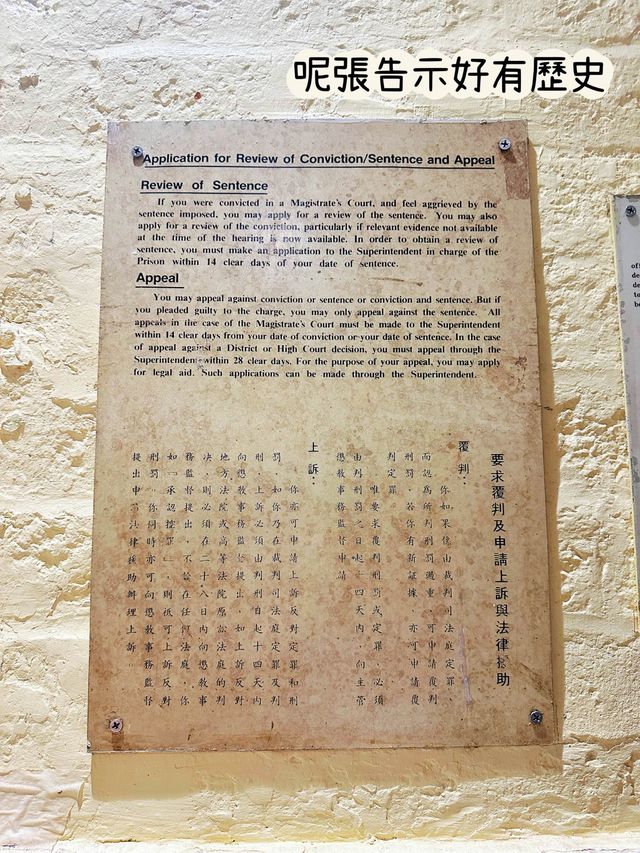 呢張告示好有歷史
Application for Review of Conviction/Sentence and Appeal
Review of Sentence
If you were convicted in a Magistrate's Court, and feel aggrieved by the
sentence imposed, you may apply for a review of the sentence. You may also
apply for a review of the conviction, particularly if relevant evidence not available
at the time of the hearing is now available. In order to obtain a review of
sentence, you must make an application to the Superintendent in charge of the
Prison within 14 clear days of your date of sentence.
Appeal
You may appeal against conviction or sentence or conviction and sentence. But if
you pleaded guilty to the charge, you may only appeal against the sentence. All
appeals in the case of the Magistrate's Court must be made to the Superintendent
within 14 clear days from your date of conviction or your date of sentence. In the case
of appeal against a District or High Court decision, you must appeal through the
Superintendent within 28 clear days. For the purpose of your appeal, you may apply
for legal aid. Such applications can be made through the Superintendent.
要求覆判及申請上訴與法律援助
覆判：
你如果係由裁判司法庭定罪，
而認爲所判刑罰過重，可申請覆判
刑罰，若你有新証據，亦可申請覆
判定罪。
惟要求覆判刑罰或定罪，必須
由判刑罰之日起十四天內，向主管
懲教事務監督申請。
上訴：
你亦可申請上訴反對定罪和刑
罰。如你乃在裁判司法庭定罪及判
刑，上訴必須由判刑自起十四天內
向懲教事務監督提出，如上訴反對
地方法院或高等法院原訟法庭的判
决，則必須在二十八日內向懲教事
務監督提出。不論在任何法庭，你
如「承認控罪」，則祇可上訴反對
刑罰。你同時亦可向懲教事務監督
提出申請法律援助辦理上訴。